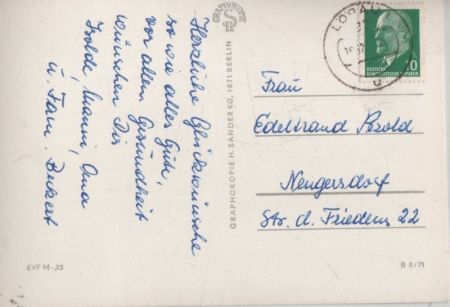 Herzliche Glückwünsche
so wie alles Gute,
vor allem Gesundheit
wünschen Dir
Isolde, Manni, Oma
u. Fam. Beckert
GRAPHOKOPIE
GRAPHOKOPIE H. SANDER KG, 1071 BERLIN
LÖBAU
DEUTSCHE
DEMOKRATISCHE REPUBLIK
10
Frau
Edeltraud Posold
Neugersdorf
Str. d. Friedens 22
EVP M -,25
B 8/71